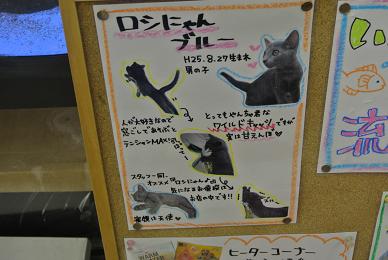 ロシにゃん
ブルー
H25.8.27生まれ
男の子
人が大好きなので
窓ごしであそぶと
テンションMAX!!
とってもやんちゃな
ワイルドキャッツですが
実は甘えんぼ♥
スタッフ一同、
オススメ「ロシにゃん」
気になるお値段は
お店の中です!!
寝顔は天使♥
い
流
ヒーターコーナー